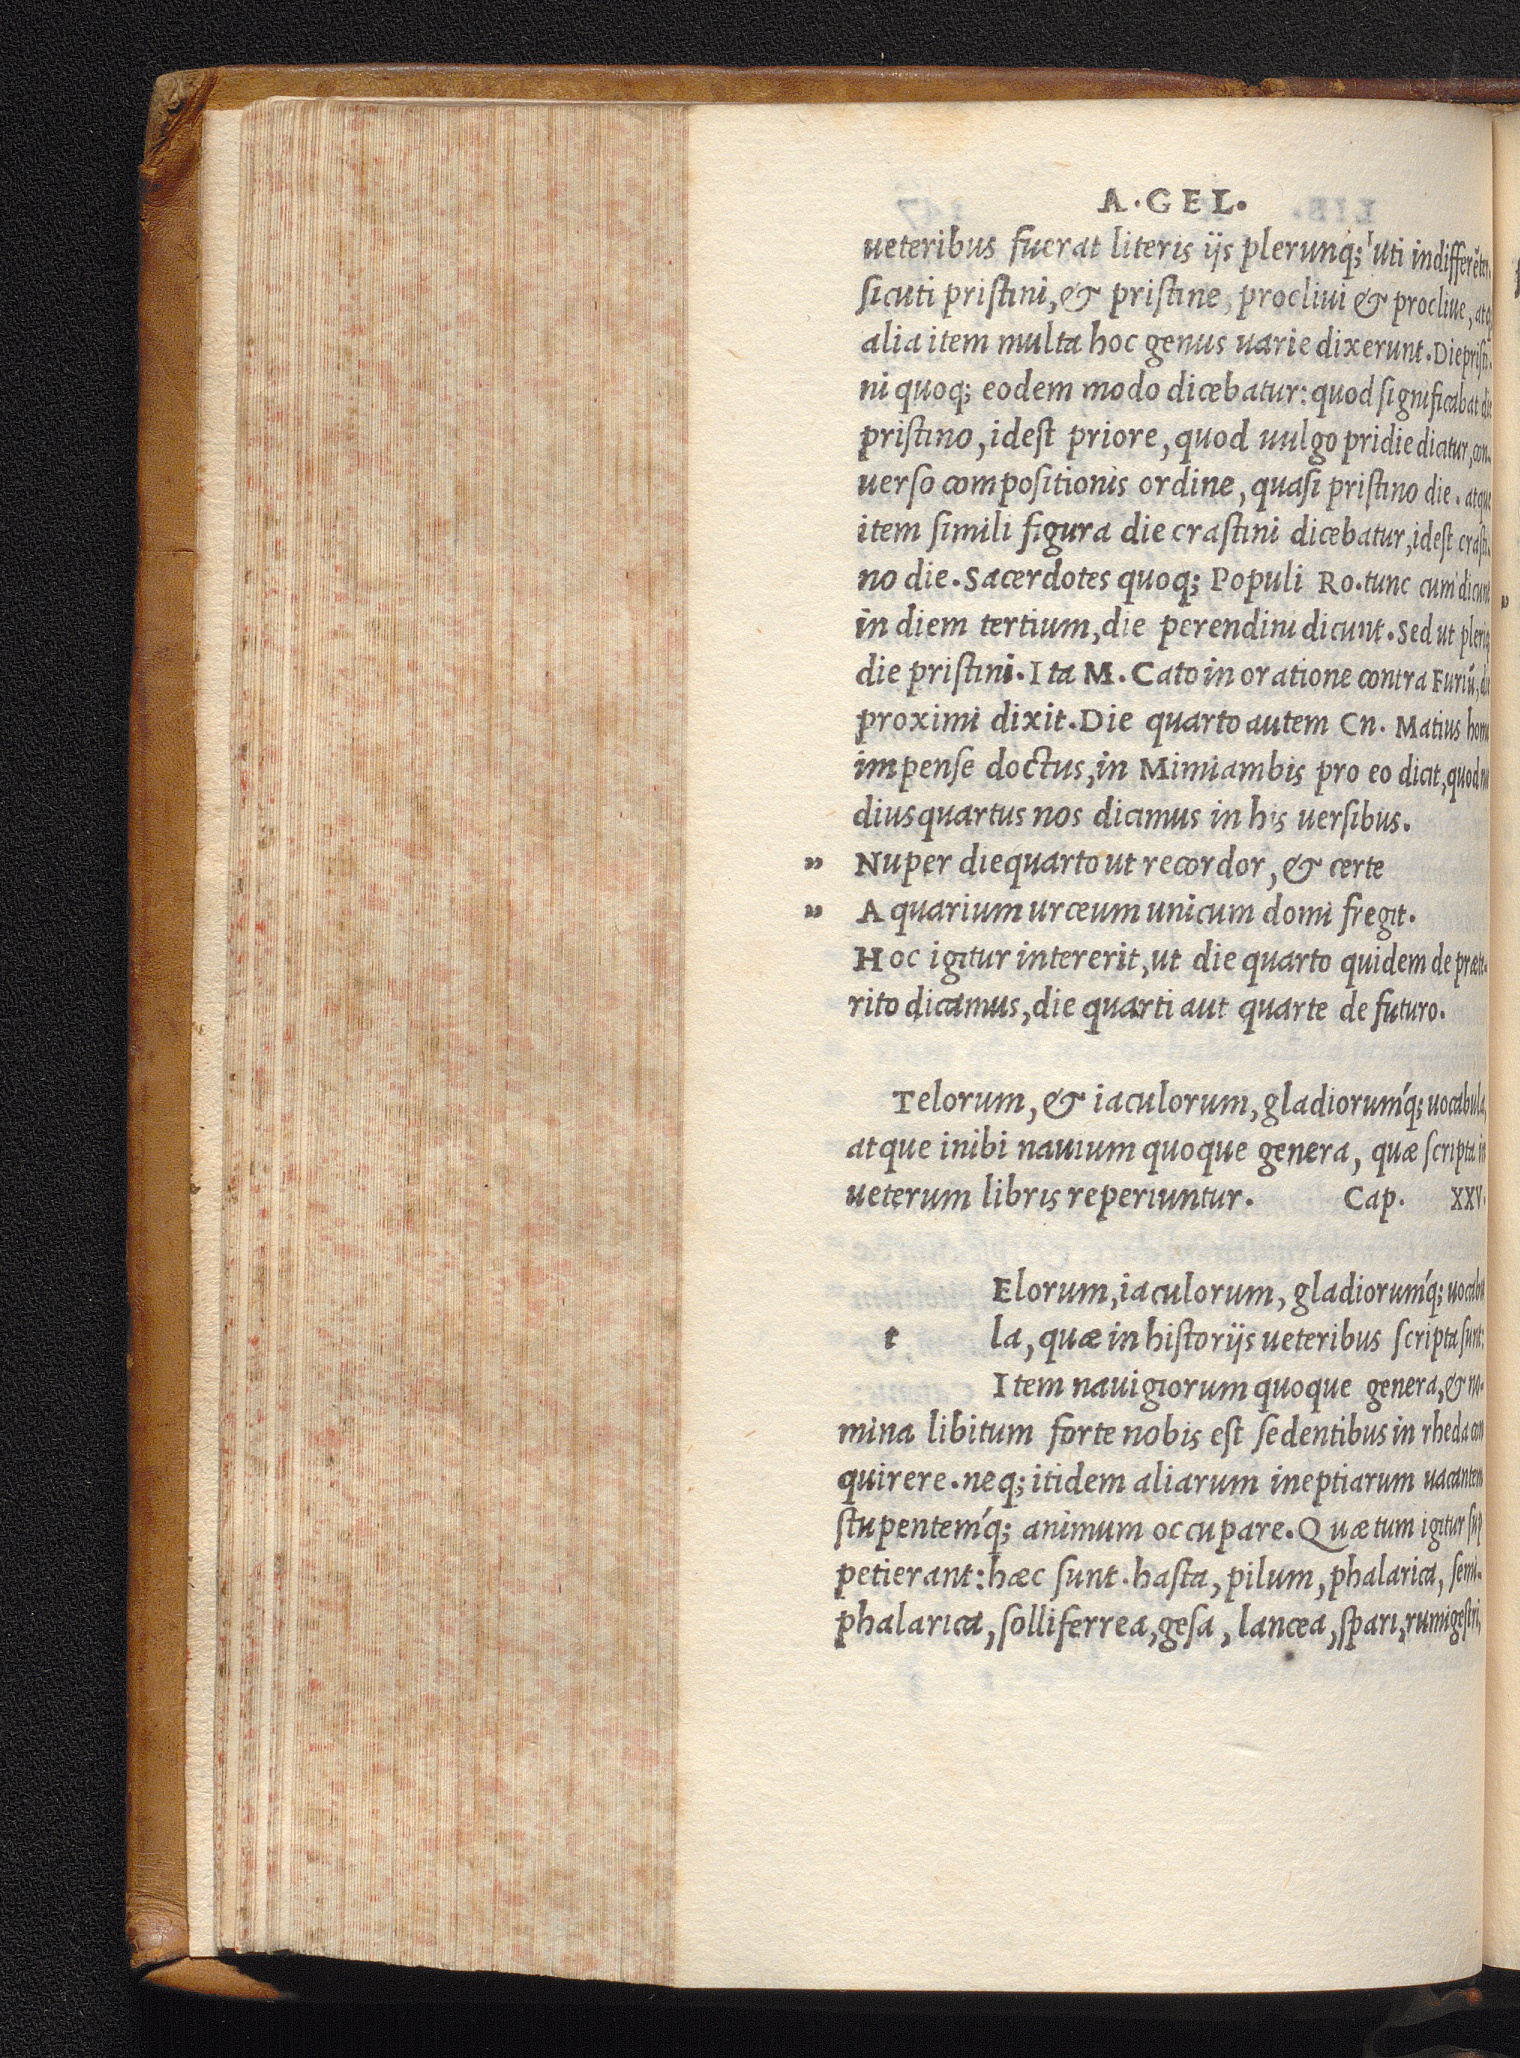 A. GEL.
ueteribus fuerat literis ijs plerunq́; uti indifferẽter.
sicuti pristini, & pristine, procliui & procliue, atq;
alia item multa hoc genus uarie dixerunt. Die pristi-
ni quoq; eodem modo dicebatur: quod significabat die
pristino, idest priore, quod uulgo pridie dicitur, con-
uerso compositionis ordine, quasi pristino die. atque
item simili figura die crastini dicebatur, idest crasti-
no die. Sacerdotes quoq; Populi Ro. tunc cum dicunt
in diem tertium, die perendini dicunt. Sed ut pleriq;
die pristini. Ita M. Cato in oratione contra Furiũ, die
proximi dixit. Die quarto autem Cn. Matius homo
impense doctus, in Mimiambis pro eo dicit, quod nu
diusquartus nos dicimus in his uersibus.
" Nuper diequarto ut recordor, & certe
" Aquarium urceum unicum domi fregit.
Hoc igitur intererit, ut die quarto quidem de præte-
rito dicamus, die quarti aut quarte de futuro.
Telorum, & iaculorum, gladiorumq́; uocabula,
atque inibi nauium quoque genera, quæ scripta in
ueterum libris reperiuntur. Cap. XXV.
Elorum, iaculorum, gladiorumq́; uocabu
t la, quæ in historijs ueteribus scripta sunt:
Item nauigiorum quoque genera, & no-
mina libitum forte nobis est sedentibus in rheda con
quirere. neq; itidem aliarum ineptiarum uacantem
stupentemq́; animum occupare. Quæ tum igitur sup
petierant: hæc sunt. hasta, pilum, phalarica, semi-
phalarica, solliferrea, gesa, lancea, spari, rumigestri,